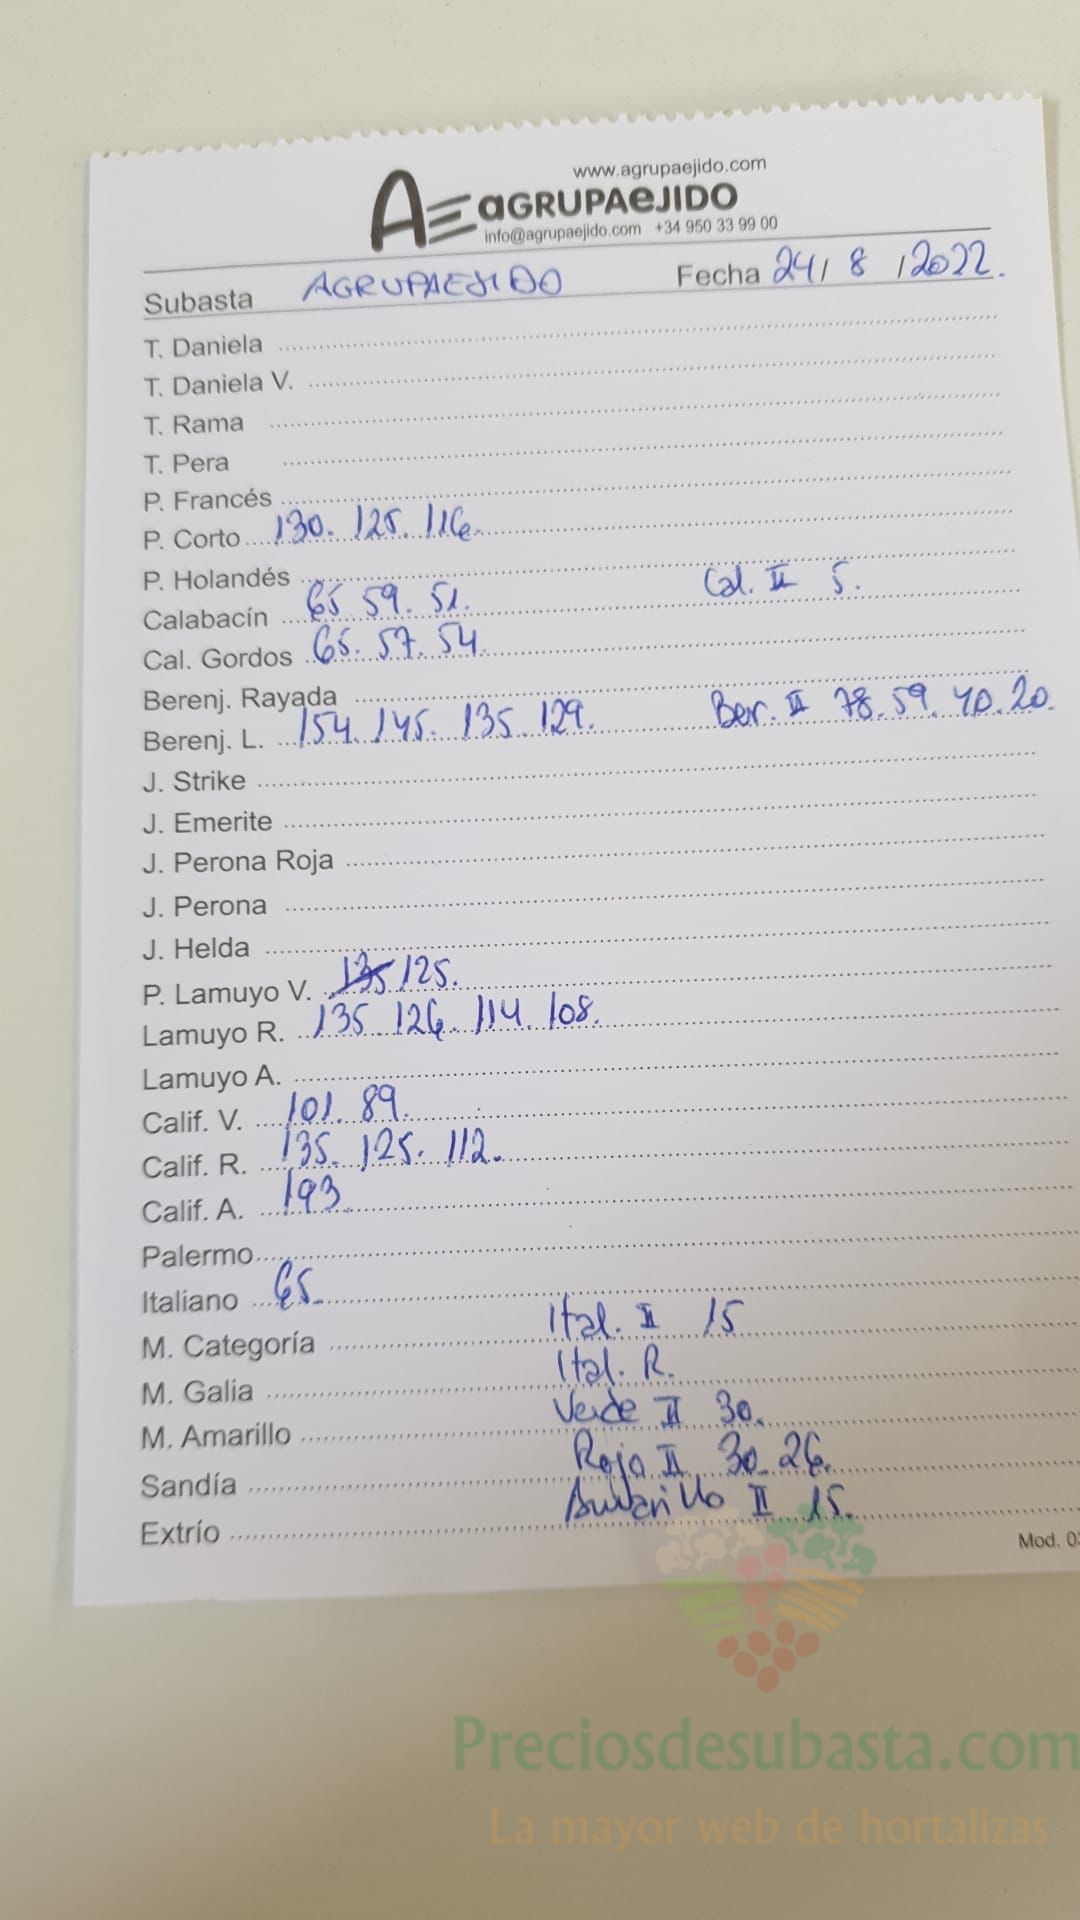 www.agrupaejido.com
AE aGRUPAeJIDO
info@agrupaejido.com +34 950 33 99 00
Subasta AGRUPAEJIDO Fecha 24/ 8 /2022.
T. Daniela
T. Daniela V.
T. Rama
T. Pera
P. Francés
P. Corto 130. 125. 116.
P. Holandés
Calabacín 65 59. 51. Cal. II 5.
Cal. Gordos 65. 57. 54.
Berenj. Rayada
Berenj. L. 154. 145. 135. 129. Ber. II 78. 59. 40. 20.
J. Strike
J. Emerite
J. Perona Roja
J. Perona
J. Helda
P. Lamuyo V. 135 125.
Lamuyo R. 135. 126. 114. 108.
Lamuyo A.
Calif. V. 101. 89.
Calif. R. 135. 125. 112.
Calif. A. 193.
Palermo
Italiano 65.
M. Categoría Ital. II 15
M. Galia Ital. R.
M. Amarillo Verde II 30.
Sandía Rojo II 30. 26.
Extrío Amarillo II 15.
Mod. 03
Preciosdesubasta.com
La mayor web de hortalizas